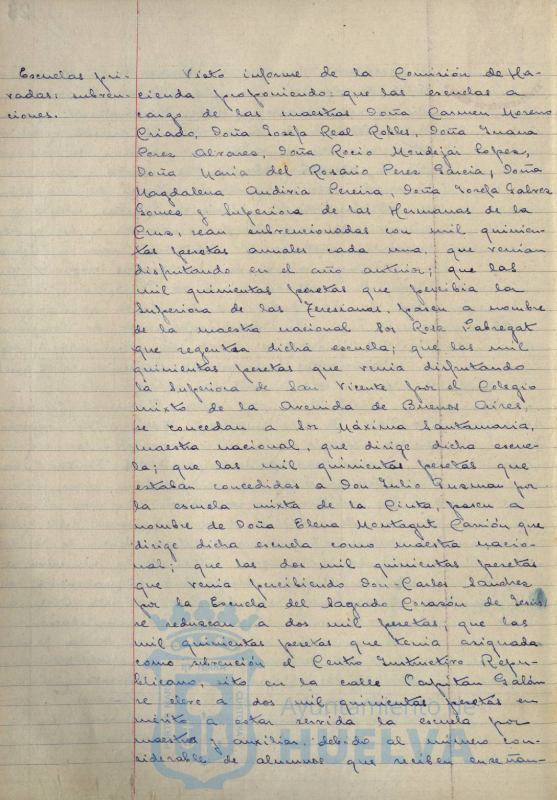 Escuelas pri-
vadas: subven-
ciones.
Visto informe de la Comisión de Ha-
cienda proponiendo: que las escuelas a
cargo de las maestras Doña Carmen Moreno
Criado, Doña Josefa Real Robles, Doña Juana
Perez Alvarez, Doña Rocio Mondejar Lopez,
Doña Maria del Rosario Perez Garcia, Doña
Magdalena Andivia Pereira, Doña Josefa Galvez
Gomez y Superiora de las Hermanas de la
Cruz, sean subvencionadas con mil quinien-
tas pesetas anuales cada una, que venian
disfrutando en el año anterior; que las
mil quinientas pesetas que percibia la
Superiora de las Teresianas, pasen a nombre
de la maestra nacional Sor Rosa Fabregat
que regentea dicha escuela; que las mil
quinientas pesetas que venia disfrutando
la Superiora de San Vicente por el Colegio
mixto de la Avenida de Buenos Aires,
se concedan a Sor Máxima Santamaria,
maestra nacional, que dirige dicha escue-
la; que las mil quinientas pesetas que
estaban concedidas a Don Julio Guzman por
la escuela mixta de la Cinta, pasen a
nombre de Doña Elena Montagut Carrión que
dirige dicha escuela como maestra nacio-
nal; que las dos mil quinientas pesetas
que venia percibiendo Don Carlos Sanchez
por la Escuela del Sagrado Corazón de Jesús
se reduzcan a dos mil pesetas; que las
mil quinientas pesetas que tenia asignadas
como subvención el Centro Instructivo Repu-
blicano, sito en la calle Capitan Galán
se eleve a dos mil quinientas pesetas en
mérito a estar servida la escuela por
maestro y auxiliar, debido al número con-
siderable de alumnos que reciben enseñan-
Ayuntamiento de
HUELVA